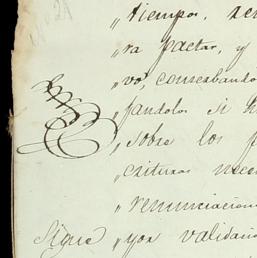 „ tiempos, ren
„ ra pactar, y
„ vo, conserbando
„ pandolos si h
„ sobre los p
„ crituras nece
„ renunciacion
Sigue „ yor validaci